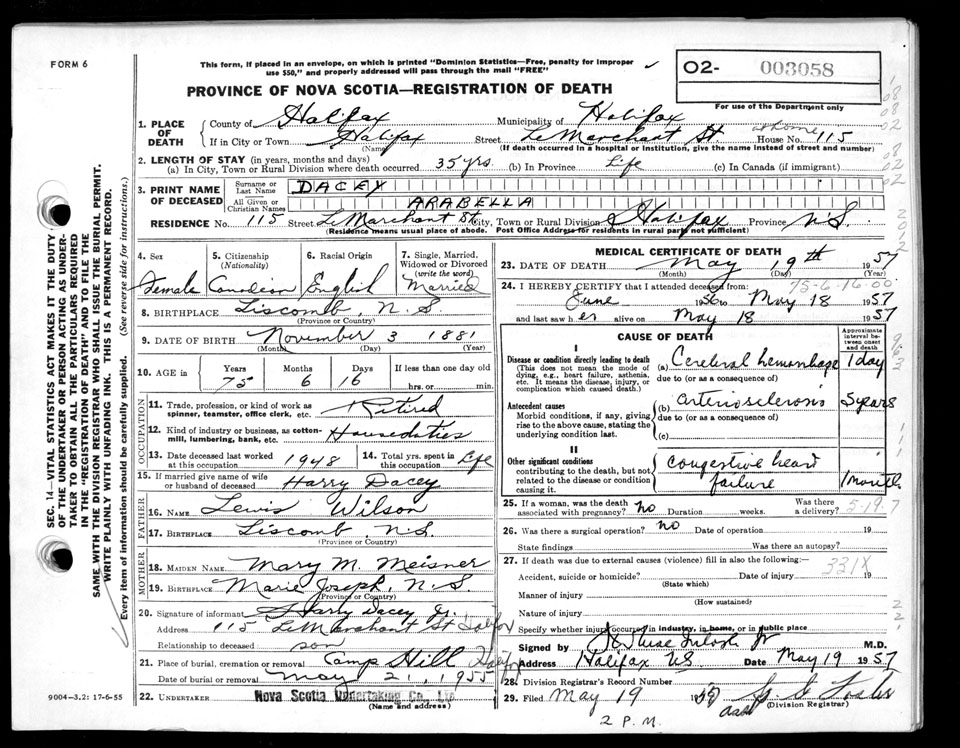 FORM 6
This form, if placed in an envelope, on which is printed "Dominion Statistics—Free, penalty for improper
use $50," and properly addressed will pass through the mail "FREE"
PROVINCE OF NOVA SCOTIA—REGISTRATION OF DEATH
02- 003058
For use of the Department only
1. PLACE OF DEATH
County of Halifax Municipality of Halifax
If in City or Town Halifax Street LeMarchant St House No. 115
at home
(Name) (If death occurred in a hospital or institution, give the name instead of street and number)
2. LENGTH OF STAY (in years, months and days)
(a) In City, Town or Rural Division where death occurred 35 yrs. (b) In Province Life (c) In Canada (if immigrant)
3. PRINT NAME OF DECEASED
Surname or Last Name DACEY
All Given or Christian Names ARABELLA
RESIDENCE No. 115 Street LeMarchant St City, Town or Rural Division Halifax Province N.S.
(Residence means usual place of abode. Post Office Address for residents in rural parts not sufficient)
4. Sex
Female
5. Citizenship (Nationality)
Canadian
6. Racial Origin
English
7. Single, Married, Widowed or Divorced (write the word)
Married
8. BIRTHPLACE Liscomb, N.S.
(Province or Country)
9. DATE OF BIRTH November 3 1881
(Month) (Day) (Year)
10. AGE in Years Months Days If less than one day old
75 6 16 hrs. or min.
OCCUPATION
11. Trade, profession, or kind of work as spinner, teamster, office clerk, etc. Retired
12. Kind of industry or business, as cotton-mill, lumbering, bank, etc. Houseduties
13. Date deceased last worked at this occupation 1948
14. Total yrs. spent in this occupation Life
15. If married give name of wife or husband of deceased Harry Dacey
FATHER
16. NAME Lewis Wilson
17. BIRTHPLACE Liscomb, N.S.
(Province or Country)
MOTHER
18. MAIDEN NAME Mary M. Meisner
19. BIRTHPLACE Marie Joseph, N.S.
(Province or Country)
20. Signature of informant Harry Dacey Jr.
Address 115 LeMarchant St Halifax
Relationship to deceased son
21. Place of burial, cremation or removal Camp Hill Halifax
Date of burial or removal May 21, 1955
22. UNDERTAKER Nova Scotia Undertaking Co. Ltd
(Name and address)
MEDICAL CERTIFICATE OF DEATH
23. DATE OF DEATH May 19th 1957
(Month) (Day) (Year)
75-6-16-00
24. I HEREBY CERTIFY that I attended deceased from:
June 1956 to May 18 1957
and last saw her on May 18 1957
CAUSE OF DEATH
Approximate interval between onset and death
I
Disease or condition directly leading to death
(This does not mean the mode of dying, e.g., heart failure, asthenia, etc. It means the disease, injury, or complication which caused death.)
(a) Cerebral hemorrhage 1 day
due to (or as a consequence of)
Antecedent causes
Morbid conditions, if any, giving rise to the above cause, stating the underlying condition last.
(b) arteriosclerosis 5 years
due to (or as a consequence of)
(c)
II
Other significant conditions
contributing to the death, but not related to the disease or condition causing it.
congestive heart failure 1 month
25. If a woman, was the death associated with pregnancy? no Duration weeks. Was there a delivery?
26. Was there a surgical operation? no Date of operation 19
State findings Was there an autopsy?
27. If death was due to external causes (violence) fill in also the following:—
331X
Accident, suicide or homicide? Date of injury 19
(State which)
Manner of injury
(How sustained)
Nature of injury
Specify whether injury occurred in industry, in home, or in public place
Signed by M.D.
Address Halifax NS Date May 19 1957
28. Division Registrar's Record Number
29. Filed May 19 1957
(Division Registrar)
2 P.M.
SEC. 14—VITAL STATISTICS ACT MAKES IT THE DUTY
OF THE UNDERTAKER OR PERSON ACTING AS UNDER-
TAKER TO OBTAIN ALL THE PARTICULARS REQUIRED
IN THE "REGISTRATION OF DEATH" AND TO FILE THE
SAME WITH THE DIVISION REGISTRAR WHO SHALL ISSUE THE BURIAL PERMIT.
WRITE PLAINLY WITH UNFADING INK. THIS IS A PERMANENT RECORD.
Every item of information should be carefully supplied. (See reverse side for instructions.)
9004—3.2: 17-6-55